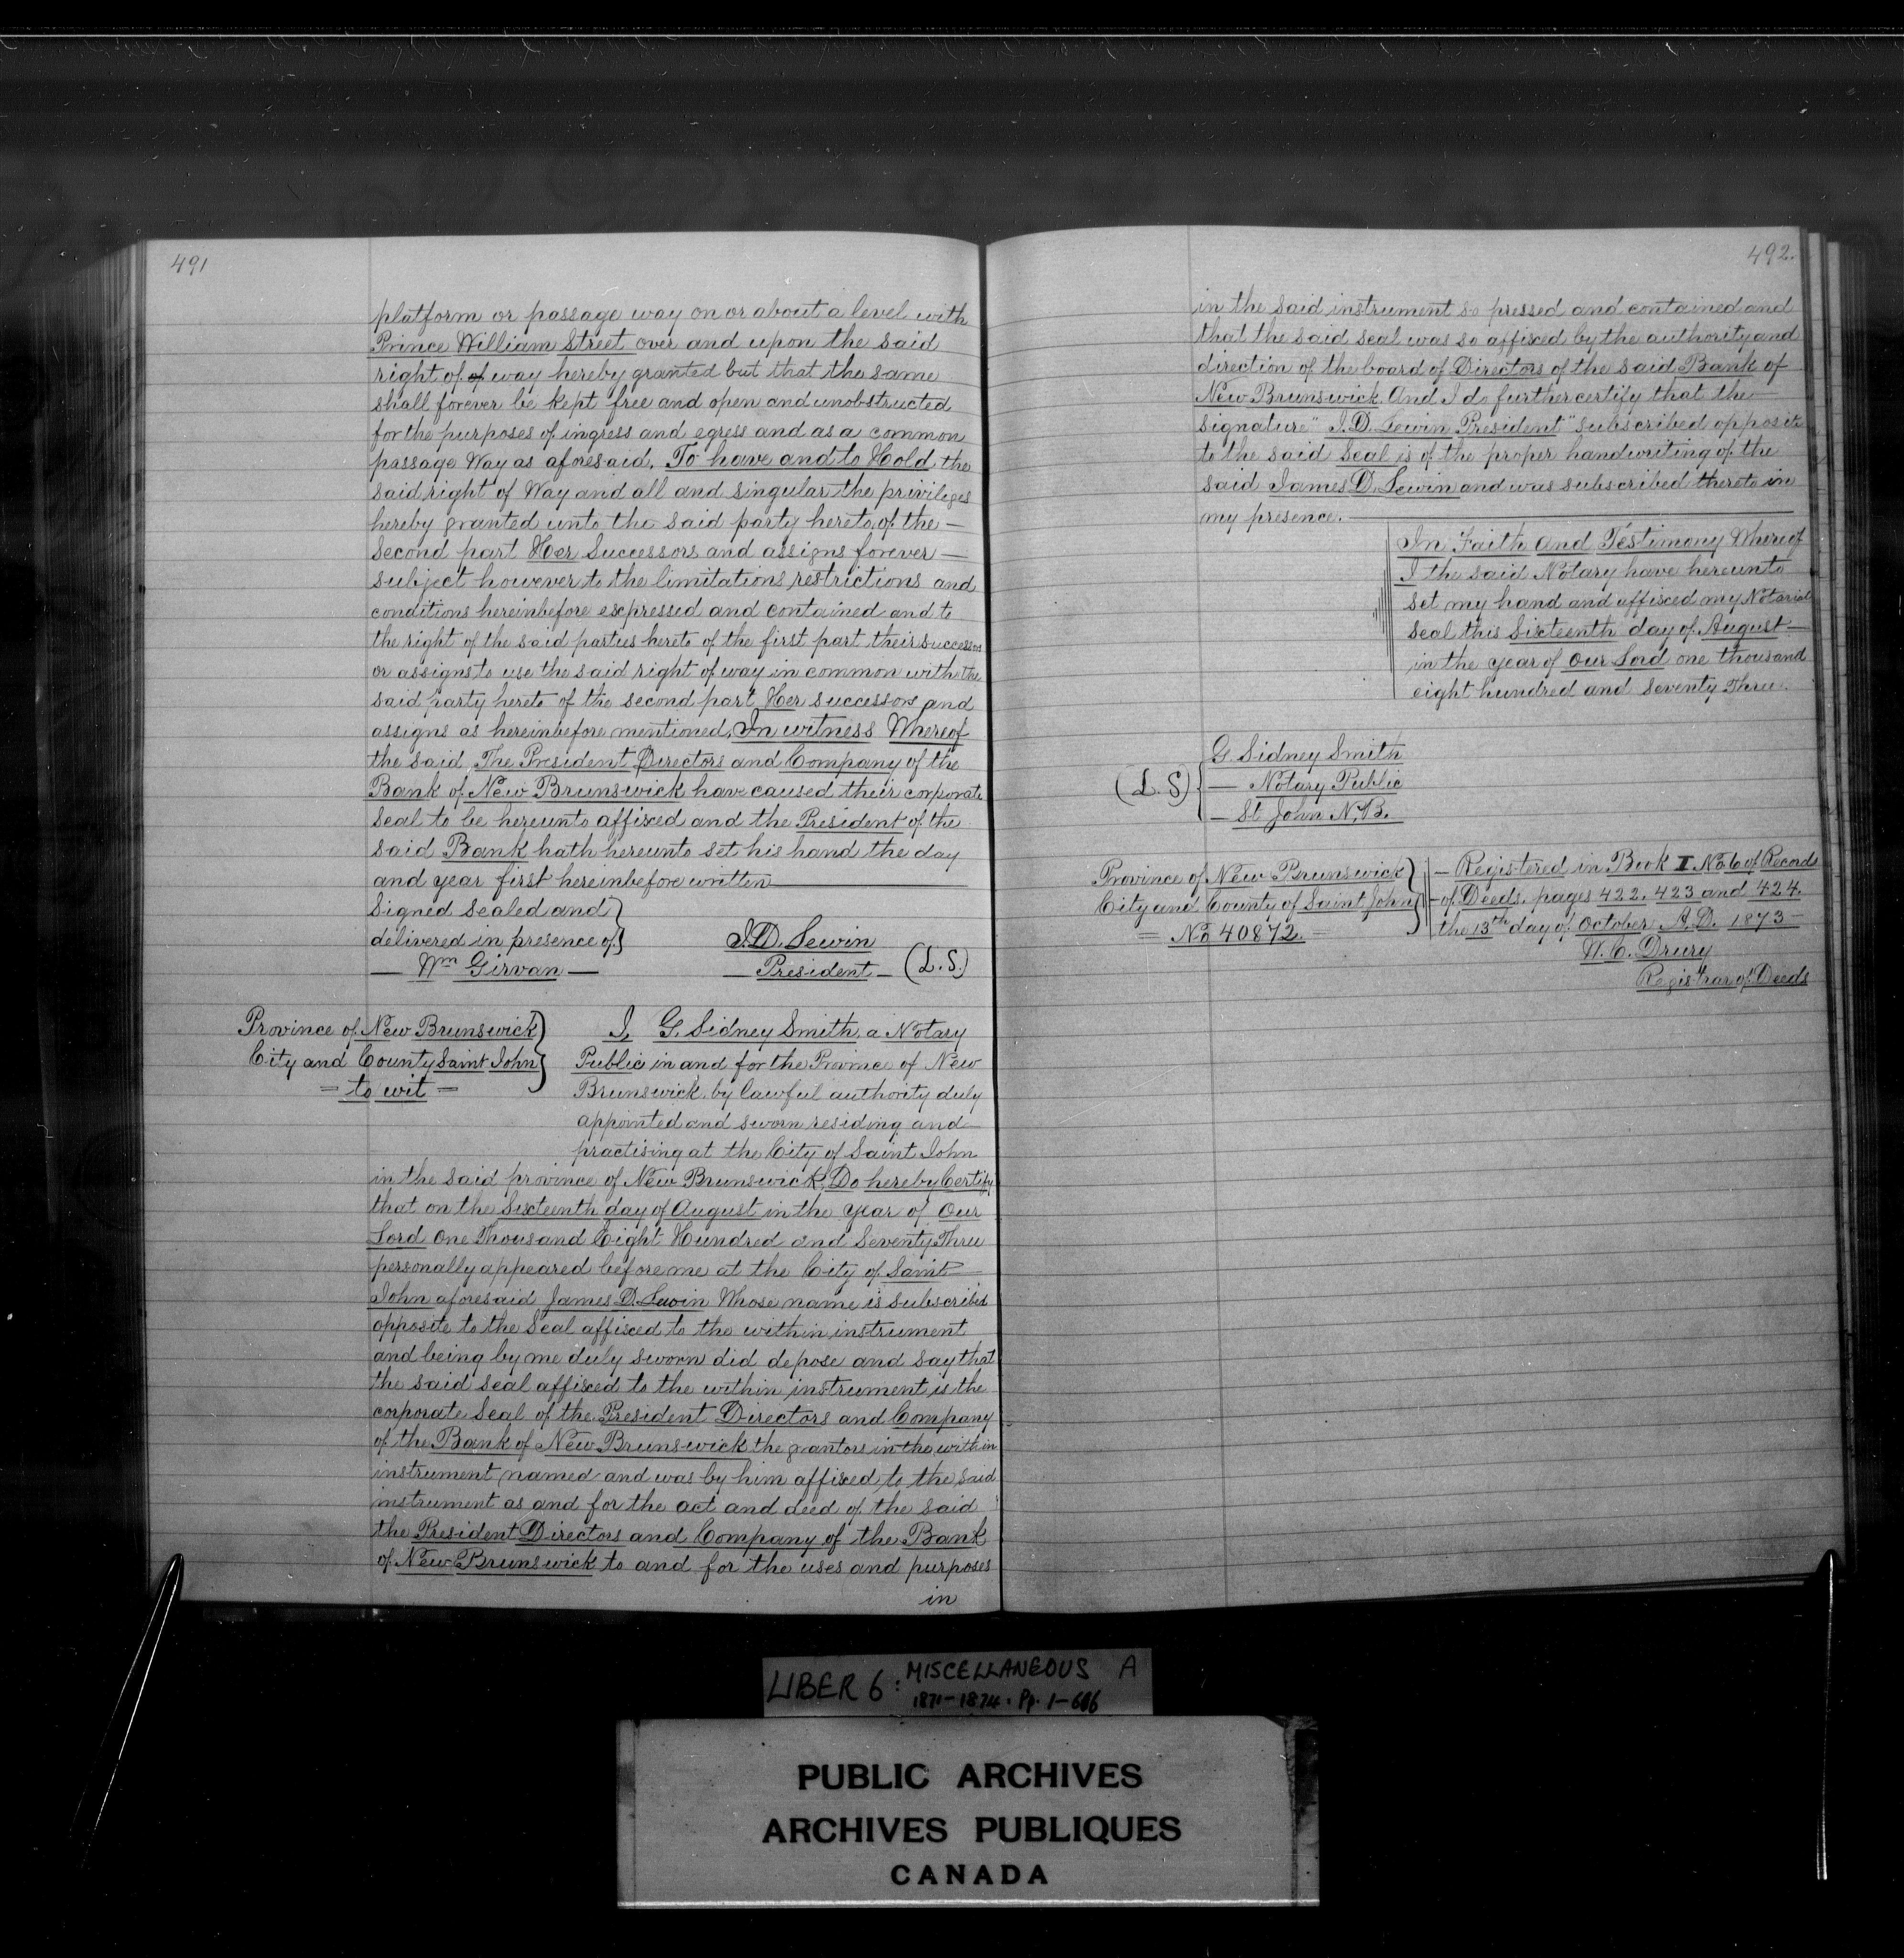 491
platform or passage way on or about a level with
Prince William Street over and upon the said
right of of way hereby granted but that the same
shall forever be kept free and open and unobstructed
for the purposes of ingress and egress and as a common
passage Way as aforesaid. To have and to Hold the
said right of Way and all and singular the privileges
hereby granted unto the said party hereto of the —
Second part Her Successors and assigns forever —
subject however to the limitations restrictions and
conditions hereinbefore expressed and contained and to
the right of the said parties hereto of the first part their successors
or assigns to use the said right of way in common with the
said party hereto of the second part Her successors and
assigns as hereinbefore mentioned. In witness Whereof
the said The President Directors and Company of the
Bank of New Brunswick have caused their corporate
Seal to be hereunto affixed and the President of the
said Bank hath hereunto set his hand the day
and year first hereinbefore written
Signed Sealed and
delivered in presence of
— Wm Girvan —
J.D. Lewin
— President — (L.S.)
Province of New Brunswick
City and County Saint John
= to wit =
I, G. Sidney Smith, a Notary
Public in and for the Province of New
Brunswick by lawful authority duly
appointed and sworn residing and
practising at the City of Saint John
in the said province of New Brunswick, Do hereby Certify
that on the Sixteenth day of August in the year of Our
Lord One Thousand Eight Hundred and Seventy Three
personally appeared before me at the City of Saint
John aforesaid James D. Lewin Whose name is Subscribed
opposite to the Seal affixed to the within instrument
and being by me duly sworn did depose and say that
the said seal affixed to the within instrument is the
corporate Seal of the President Directors and Company
of the Bank of New Brunswick the grantors in the within
instrument named and was by him affixed to the said
instrument as and for the act and deed of the said
the President Directors and Company of the Bank
of New Brunswick to and for the uses and purposes
in
492.
in the said instrument so pressed and contained and
that the said seal was so affixed by the authority and
direction of the board of Directors of the said Bank of
New Brunswick And I do further certify that the
signature "J.D. Lewin President" subscribed opposite
to the said Seal is of the proper handwriting of the
said James D. Lewin and was subscribed thereto in
my presence.
In Faith and Testimony Whereof
I the said Notary have hereunto
set my hand and affixed my Notarial
seal this Sixteenth day of August —
in the year of Our Lord one thousand
eight hundred and Seventy Three.
(L.S)
G Sidney Smith
— Notary Public
— St John N.B.
Province of New Brunswick
City and County of Saint John
= No 40872. =
— Registered in Book I No 6 of Records
— of Deeds, pages 422, 423 and 424.
the 13th day of October A.D. 1873 —
W. C. Drury
Registrar of Deeds
LIBER 6: MISCELLANEOUS A
1871-1874. Pp. 1-666
PUBLIC ARCHIVES
ARCHIVES PUBLIQUES
CANADA